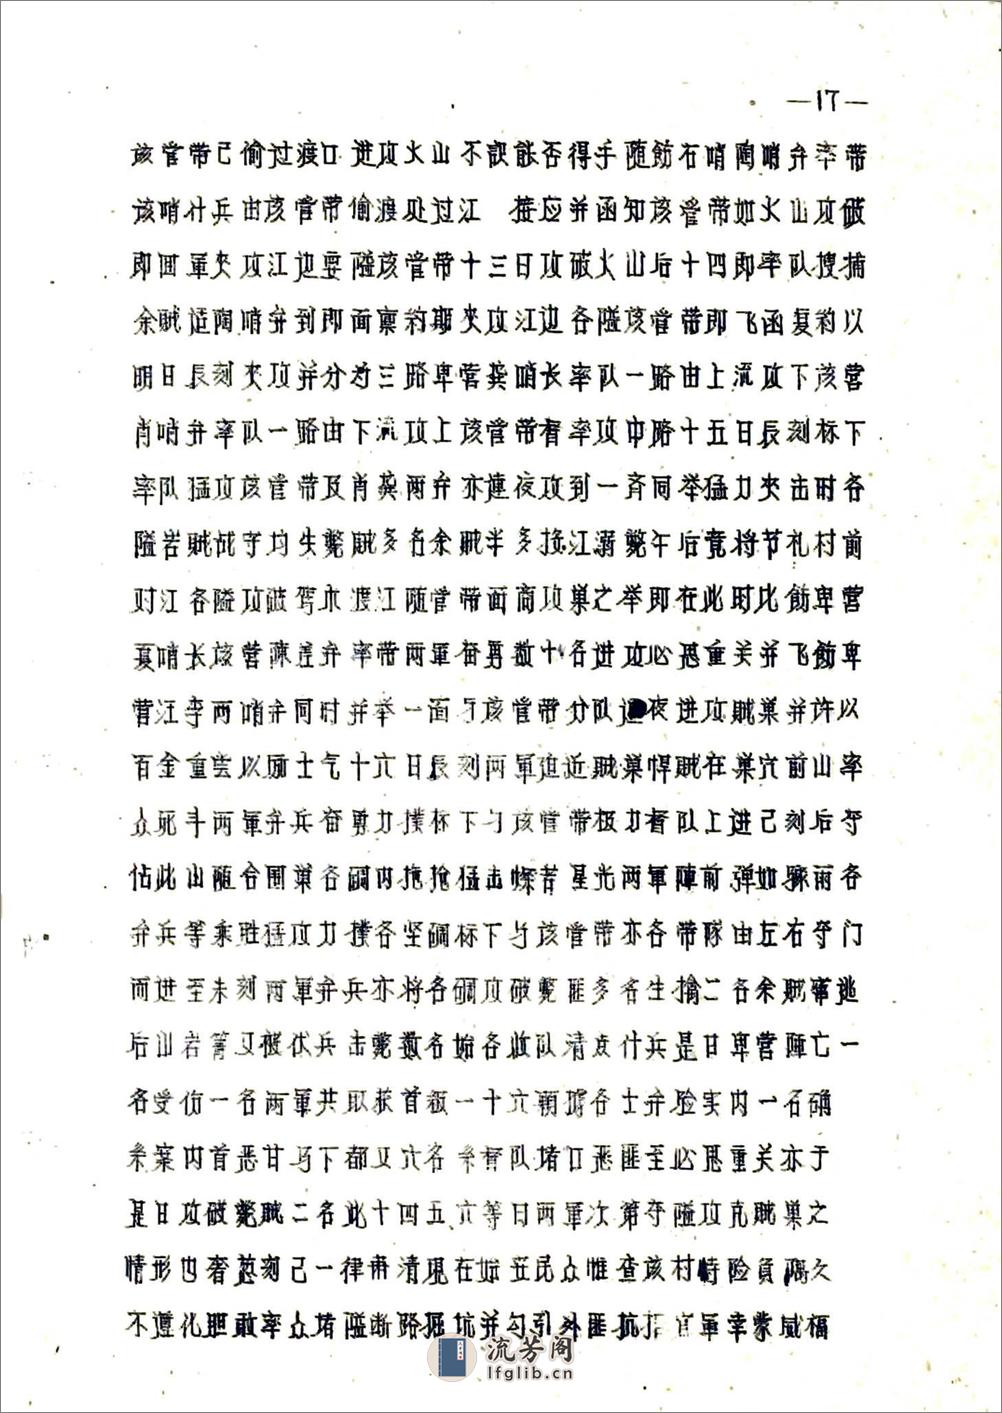 —17—
该管带已偷过渡口进攻火山不识能否得手随饬石哨陶哨弁率带
该哨什兵由该管带偷渡处过江 接应并函知该管带如火山攻破
即回軍夹攻江边要隘该管带十三日攻破火山后十四即率队搜捕
余贼适陶哨弁到即面禀约期夹攻江边各隘该管带即飞函复约以
明日辰刻夹攻并分为三路卑营龚哨长率队一路由上流攻下该营
肖哨弁率队一路由下流攻上该管带督率攻中路十五日辰刻标下
率队猛攻该管带及肖龚两弁亦連夜攻到一斉同举猛力夹击时各
隘岩贼战守均失毙贼多名余贼半多投江溺毙午后竟将节礼村前
对江各隘攻破驾木渡江随管带面商攻巢之举即在此时比饬卑营
夏哨长该营陳差弁率带两軍奋勇数十名进攻必恶重关并飞饬卑
营江李两哨弁同时并举一面与该管带分队連夜进攻贼巢并许以
百金重尝以励士气十六日辰刻两軍迫近贼巢悍贼在巢穴前山率
众死斗两軍弁兵奋勇力撲标下与该管带极力督队上进己刻后夺
佔此山随合围巢各碉内拖抢猛击灿若星光两軍陣前弹如骤雨各
弁兵等乘胜猛攻力撲各坚碉标下与该管带亦各带隊由左右夺门
而进至未刻两軍弁兵亦将各碉攻破毙匪多名生擒二名余贼窜逃
后山岩箐又被伏兵击毙数名始各收队清点什兵是日卑营陣亡一
名受伤一名两軍共取获首级一十六颗据各士弁验实内一名确
系案内首恶甘马下都又六名系督队堵口恶匪至必恶重关亦于
是日攻破毙贼二名此十四五六等日两軍次第夺隘攻克贼巢之
情形也奢苾刻己一律肃清現在始至民众惟查该村特险負隅久
不遵礼胆敢率众堵隘断路掘坑并勾引外匪抗拒官軍幸蒙威福
流芳阁
lfglib.cn